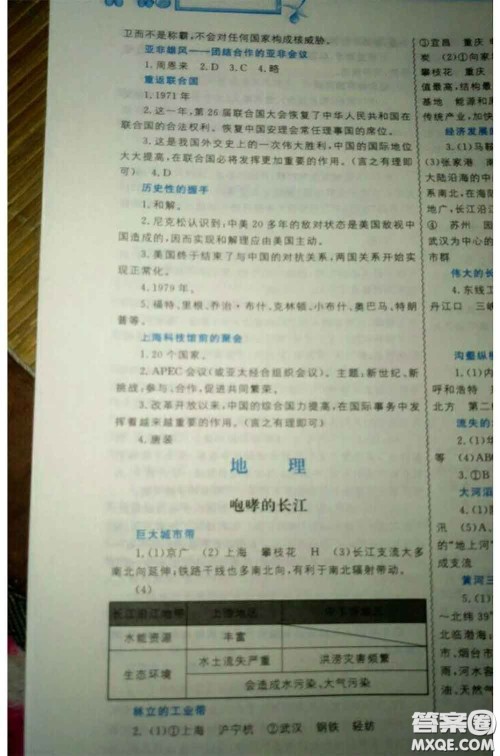 卫而不是称霸，不会对任何国家构成核威胁。
亚非雄风——团结合作的亚非会议
1.周恩来　2.D　3.C　4.略
重返联合国
1.1971年
2.这一年，第26届联合国大会恢复了中华人民共和国在
联合国的合法权利。恢复中国安理会常任理事国的席位。
3.这是我国外交史上的一次伟大胜利，中国的国际地位
大大提高，在联合国必将发挥更加重要的作用。(言之有理即
可)　4.D
历史性的握手
1.和解。
2.尼克松认识到，中美20多年的敌对状态是美国敌视中
国造成的，因而实现和解理应由美国主动。
3.美国终于结束了与中国的对抗关系，两国关系开始实
现正常化。
4.1979年。
5.福特、里根、乔治·布什、克林顿、小布什、奥巴马、特朗
普等。
上海科技馆前的聚会
1.20个国家。
2.APEC会议(或亚太经合组织会议)。主题：新世纪、新
挑战：参与、合作，促进共同繁荣。
3.改革开放以来，中国的综合国力提高，在国际事务中发
挥着越来越重要的作用。(言之有理即可)
4.唐装
地　理
咆哮的长江
巨大城市带
1.(1)京广　(2)上海　攀枝花　H　(3)长江支流大多
南北向延伸，铁路干线也多南北向，有利于南北辐射带动。
(4)
长江沿江地带　上游地区
水能资源　丰富
生态环境　水土流失严重　洪涝灾害频繁
会造成水污染、大气污染
林立的工业带
2.(1)①上海　沪宁杭　②武汉　钢铁　轻纺
③宜昌　重庆
炭　(2)①向家
攀枝花　重庆
值最高，结构最
基地　能源和原
传统产业，加快
经济发展
3.(1)马鞍
(2)张家港　南
大陆沿海的中
系南北，在南北
地广，长江沿江
④　苏州　园
武汉为中心的
市群
伟大的长
4.东线工
丹江口　三峡
沟壑纵横
1.(1)
呼和浩特
北方　第二
等　(4)AB
大河滔
汛　(5)
的"地上河"
成支流
黄河三
5.(1)
～北纬39°
临渤海
州、烟台市
河、水库
油、天然气
答案圈
MXQE.COM